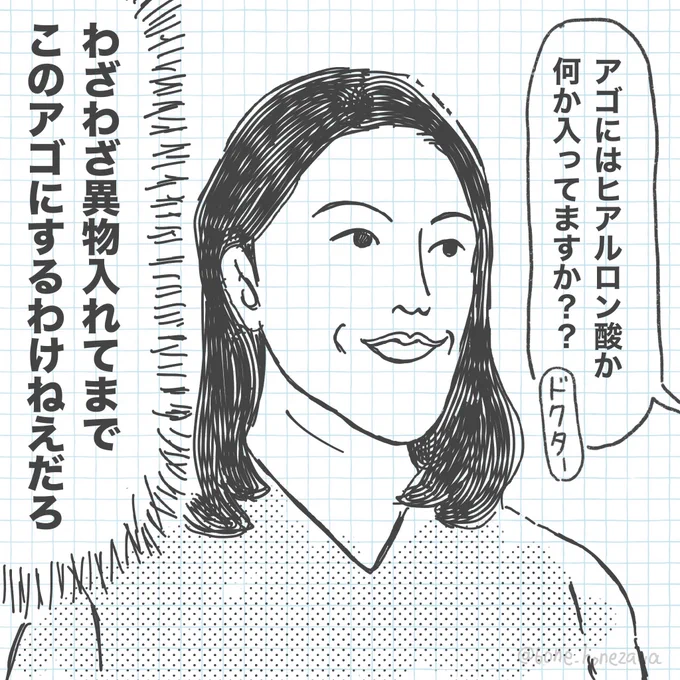 アゴにはヒアルロン酸か
何か入ってますか？？
ドクター
わざわざ異物入れてまで
このアゴにするわけねえだろ